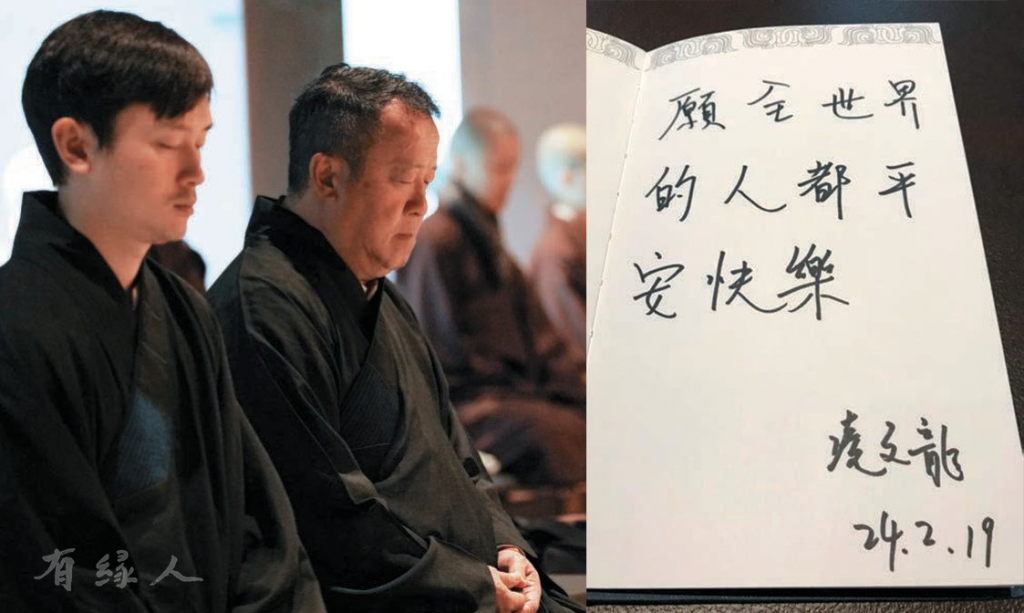 願全世界
的人都平
安快樂
曉文龍
24.2.19
有緣人